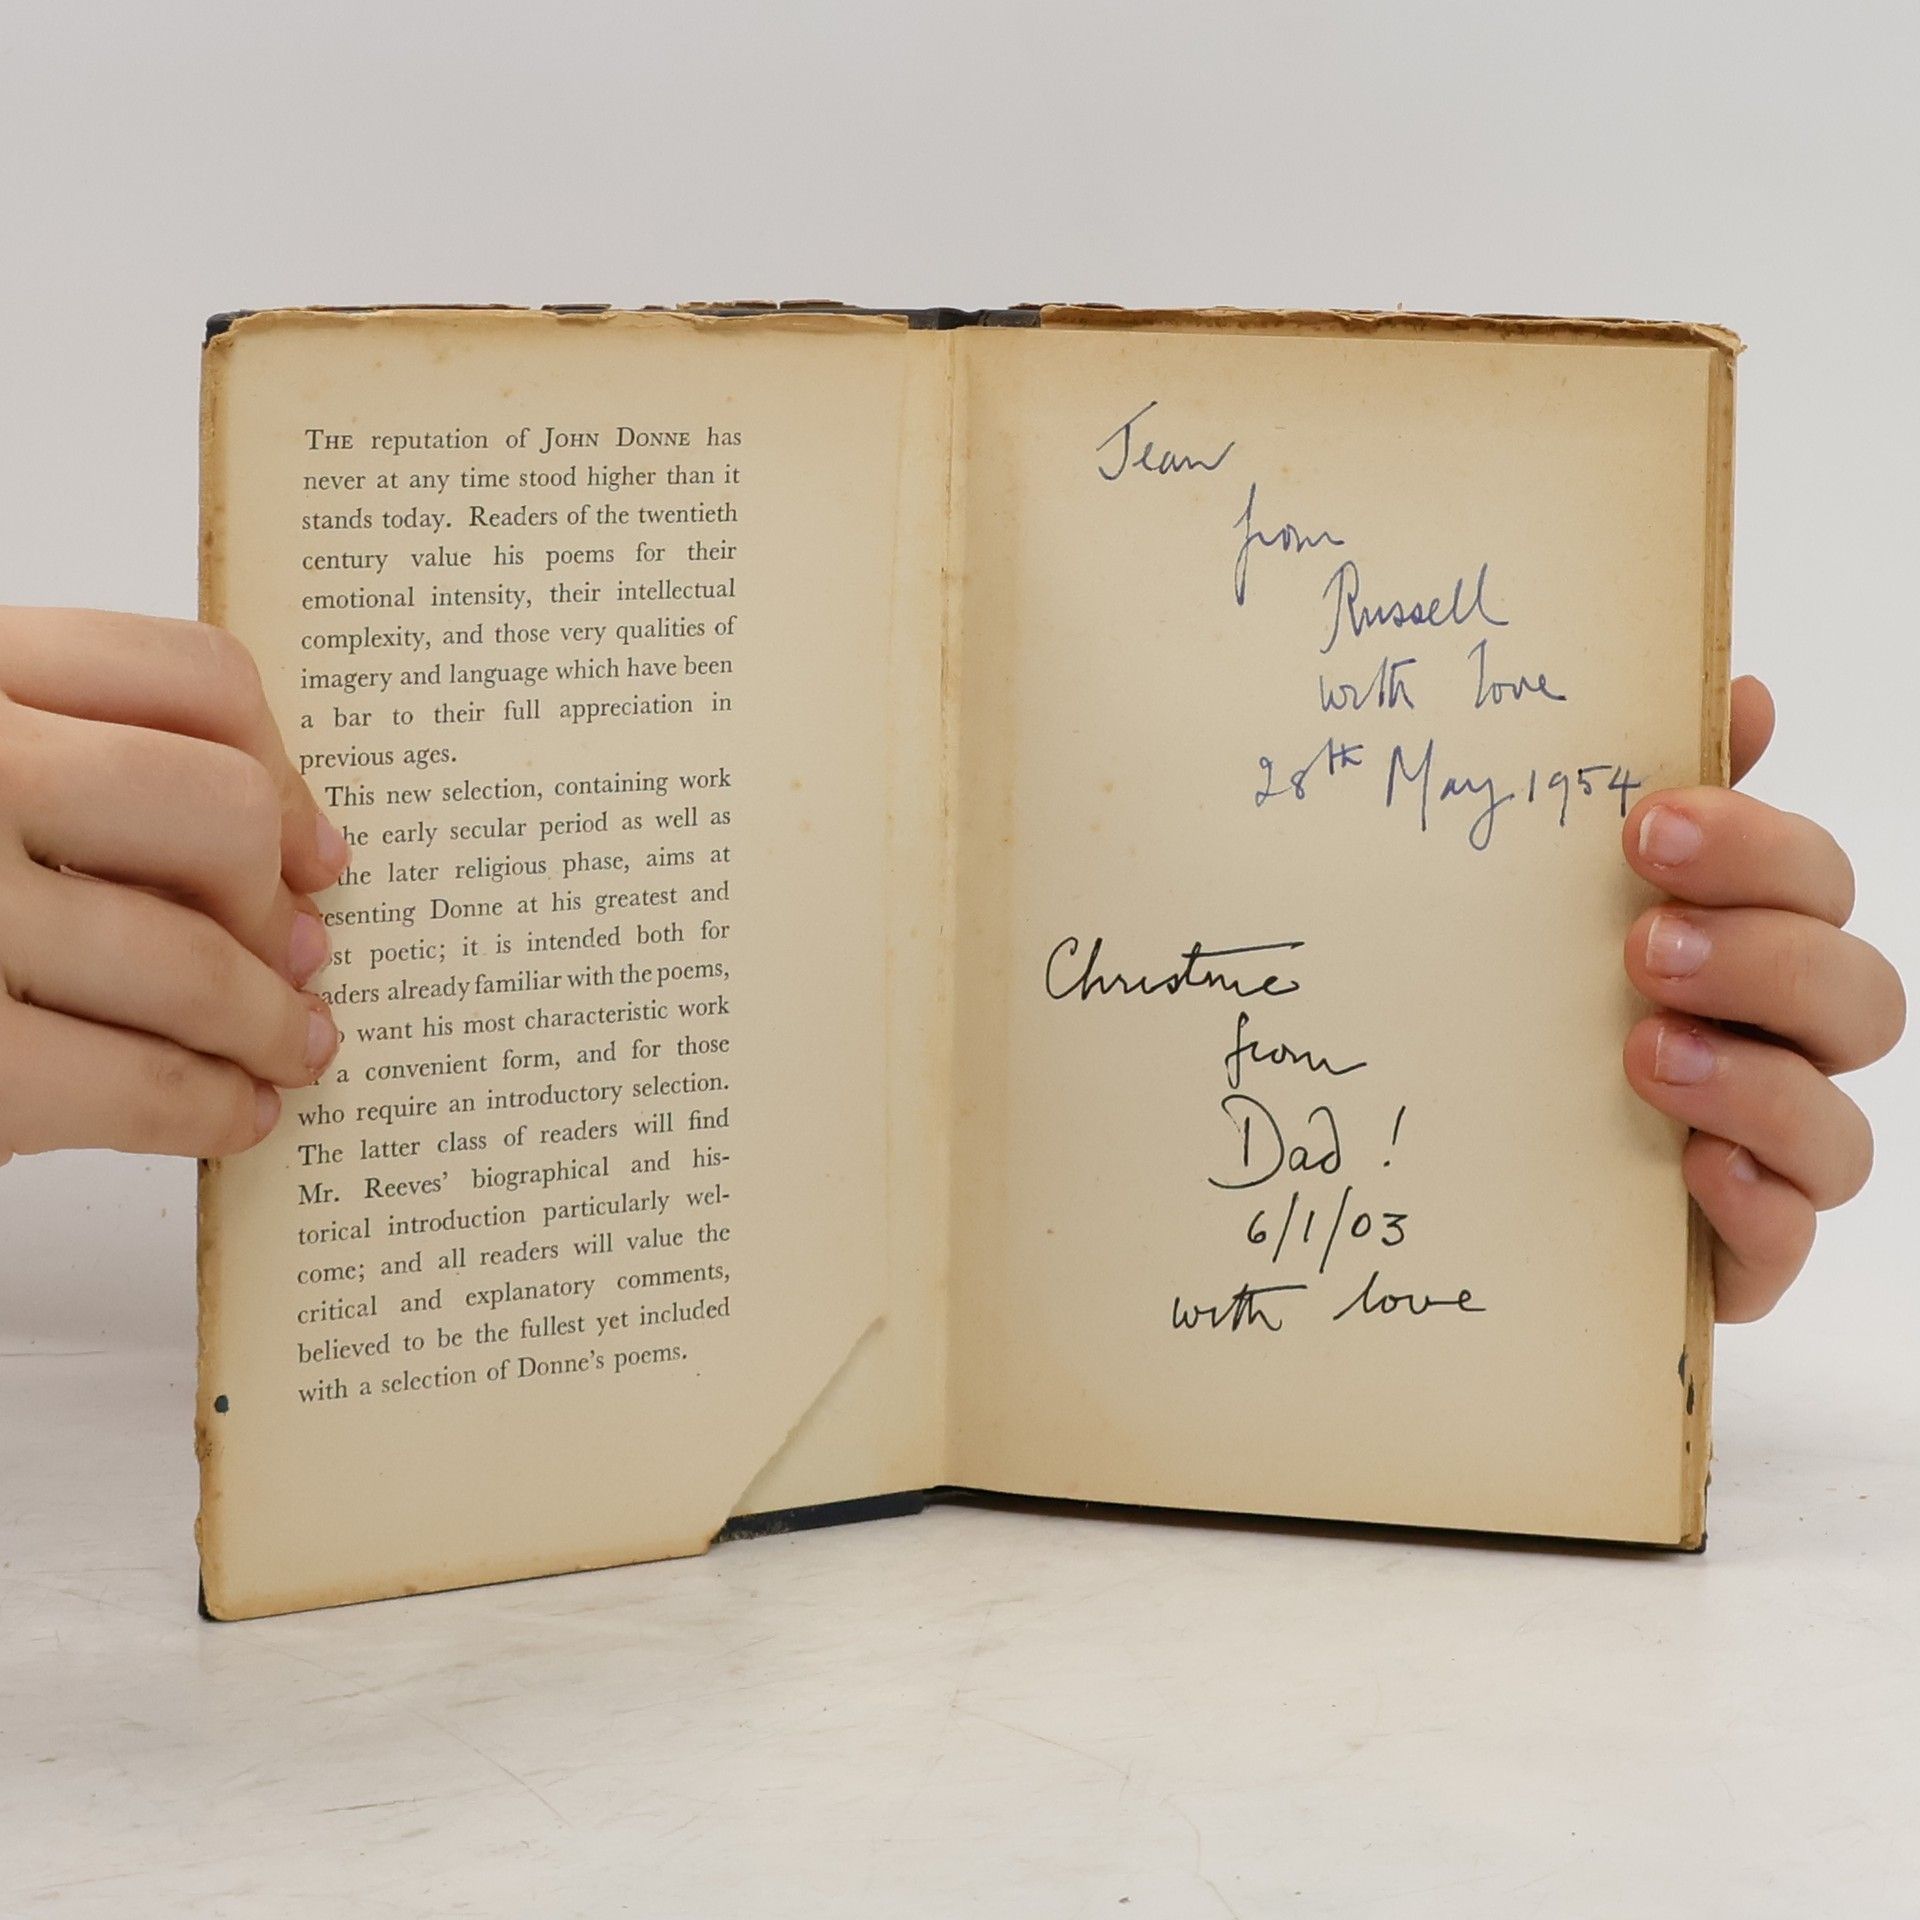 THE reputation of JOHN DONNE has
never at any time stood higher than it
stands today. Readers of the twentieth
century value his poems for their
emotional intensity, their intellectual
complexity, and those very qualities of
imagery and language which have been
a bar to their full appreciation in
previous ages.
This new selection, containing work
early secular period as well as
the later religious phase, aims at
Donne at his greatest and
poetic; it is intended both for
already familiar with the poems,
want his most characteristic work
a convenient form, and for those
who require an introductory selection.
The latter class of readers will find
Mr. Reeves' biographical and his-
torical introduction particularly wel-
come; and all readers will value the
critical and explanatory comments,
believed to be the fullest yet included
with a selection of Donne's poems.
Jean
from
Russell
with love
28th May 1954
Christine
from
Dad !
6/1/03
with love